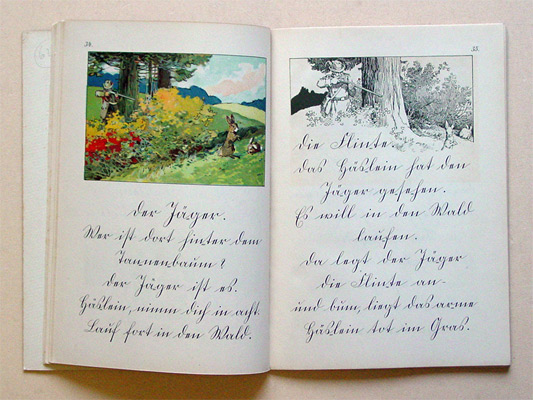 34.
der Jäger.
Wer ist dort hinter dem
Tannenbaum?
der Jäger ist es.
Häslein, nimm dich in acht.
Lauf fort in den Wald.
35.
die Flinte
das Häslein hat den
Jäger gesehen.
Es will in den Wald
laufen.
da legt der Jäger
die Flinte an-
und bum, liegt das arme
Häslein tot im Gras.